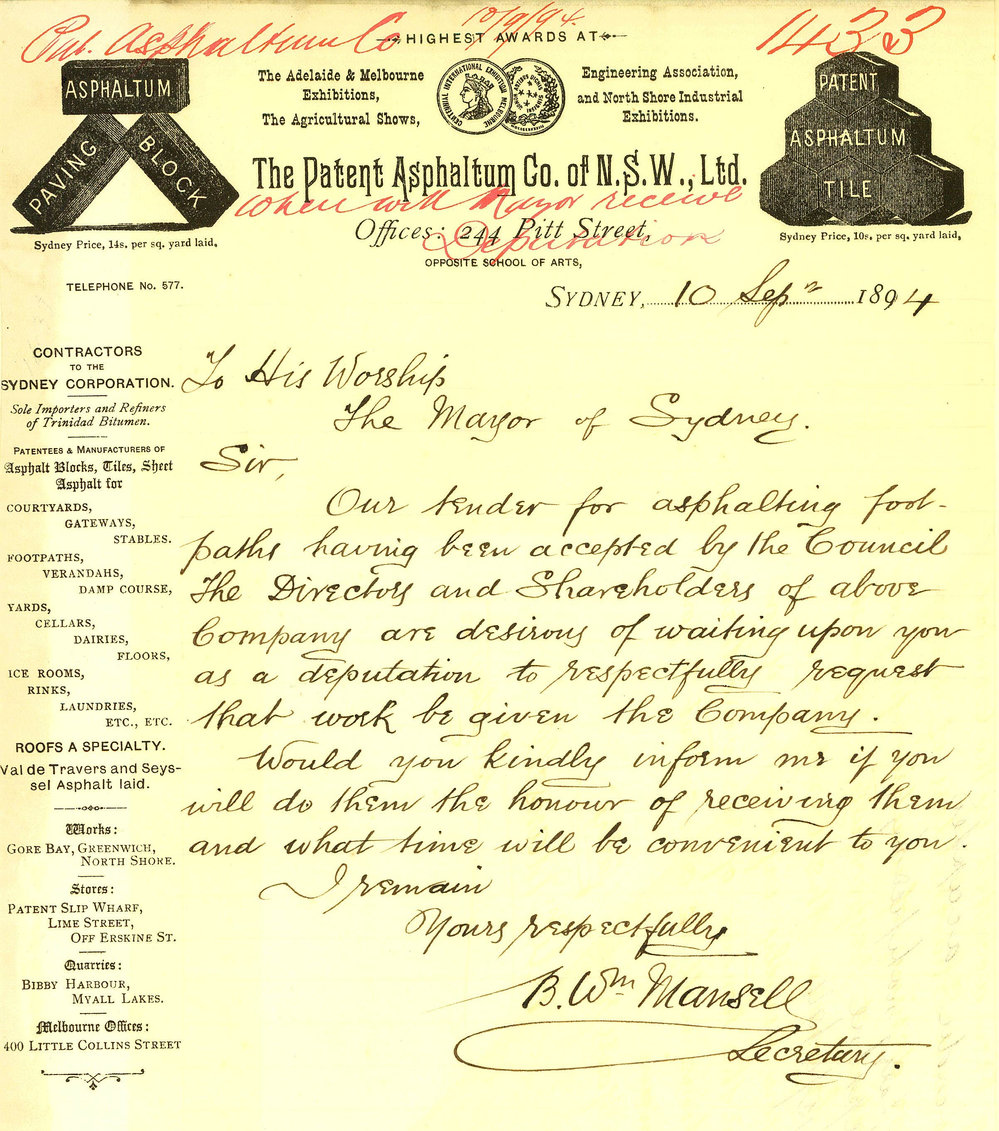 Pat. Asphaltum Co 10/9/94.
1433
HIGHEST AWARDS AT
ASPHALTUM
PAVING
BLOCK
Sydney Price, 14s. per sq. yard laid,
The Adelaide & Melbourne
Exhibitions,
The Agricultural Shows,
CENTENNIAL INTERNATIONAL EXHIBITION MELBOURNE
Engineering Association,
and North Shore Industrial
Exhibitions.
PATENT
ASPHALTUM
TILE
Sydney Price, 10s. per sq. yard laid,
The Patent Asphaltum Co. of N.S.W., Ltd.
When will Mayor receive
Deputation
Offices: 244 Pitt Street,
OPPOSITE SCHOOL OF ARTS,
TELEPHONE No. 577.
SYDNEY, 10 Sepr 1894
CONTRACTORS
TO THE
SYDNEY CORPORATION.
Sole Importers and Refiners
of Trinidad Bitumen.
PATENTEES & MANUFACTURERS OF
Asphalt Blocks, Tiles, Sheet
Asphalt for
COURTYARDS,
GATEWAYS,
STABLES.
FOOTPATHS,
VERANDAHS,
DAMP COURSE,
YARDS,
CELLARS,
DAIRIES,
FLOORS,
ICE ROOMS,
RINKS,
LAUNDRIES,
ETC., ETC.
ROOFS A SPECIALTY.
Val de Travers and Seys-
sel Asphalt laid.
Works:
GORE BAY, GREENWICH,
NORTH SHORE.
Stores:
PATENT SLIP WHARF,
LIME STREET,
OFF ERSKINE ST.
Quarries:
BIBBY HARBOUR,
MYALL LAKES.
Melbourne Offices:
400 LITTLE COLLINS STREET
To His Worship
The Mayor of Sydney.
Sir,
Our tender for asphalting foot-
paths having been accepted by the Council
The Directors and Shareholders of above
Company are desirous of waiting upon you
as a deputation to respectfully request
that work be given the Company.
Would you kindly inform me if you
will do them the honour of receiving them
and what time will be convenient to you.
I remain
Yours respectfully
B. Wm Mansell
Secretary.